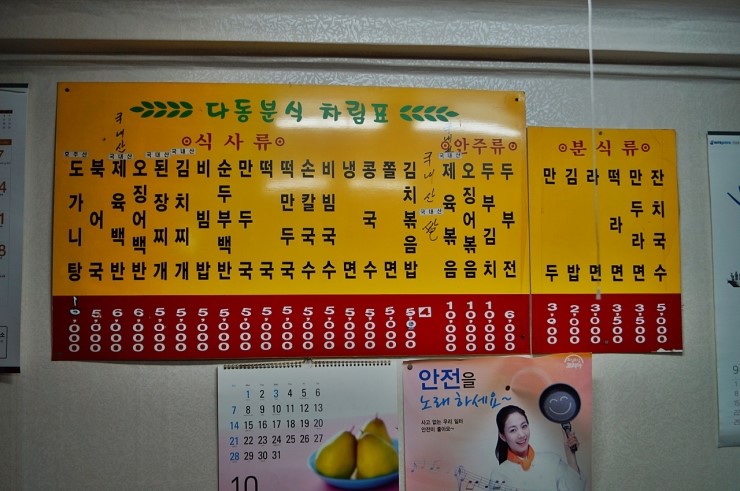 다동분식 차림표
식사류
안주류
분식류
호주산
국내산
국내산
국내산
국내산
국내산
국내산
국내산 쌀
도가니탕
북어국
제육백반
오징어백반
된장찌개
김치찌개
비빔밥
순두부백반
만두국
떡국
떡만두국
손칼국수
비빔국수
냉면
콩국수
쫄면
김치볶음밥
제육볶음
오징어볶음
두부김치
두부전
만두
김밥
라면
떡라면
만두라면
잔치국수
5.000
6.000
6.000
5.000
5.000
5.000
5.000
5.000
5.000
5.000
5.000
5.000
5.000
5.000
5.000
4
10.000
10.000
10.000
6.000
3.000
2.000
3.000
3.500
3.500
5.000
1 2 3 4 5 6
7 8 9 10 11 12 13
14 15 16 17 18 19 20
21 22 23 24 25 26 27
28 29 30 31
10
안전을
노래 하세요~
사고 없는 우리 일터
안전이 좋아요~
9